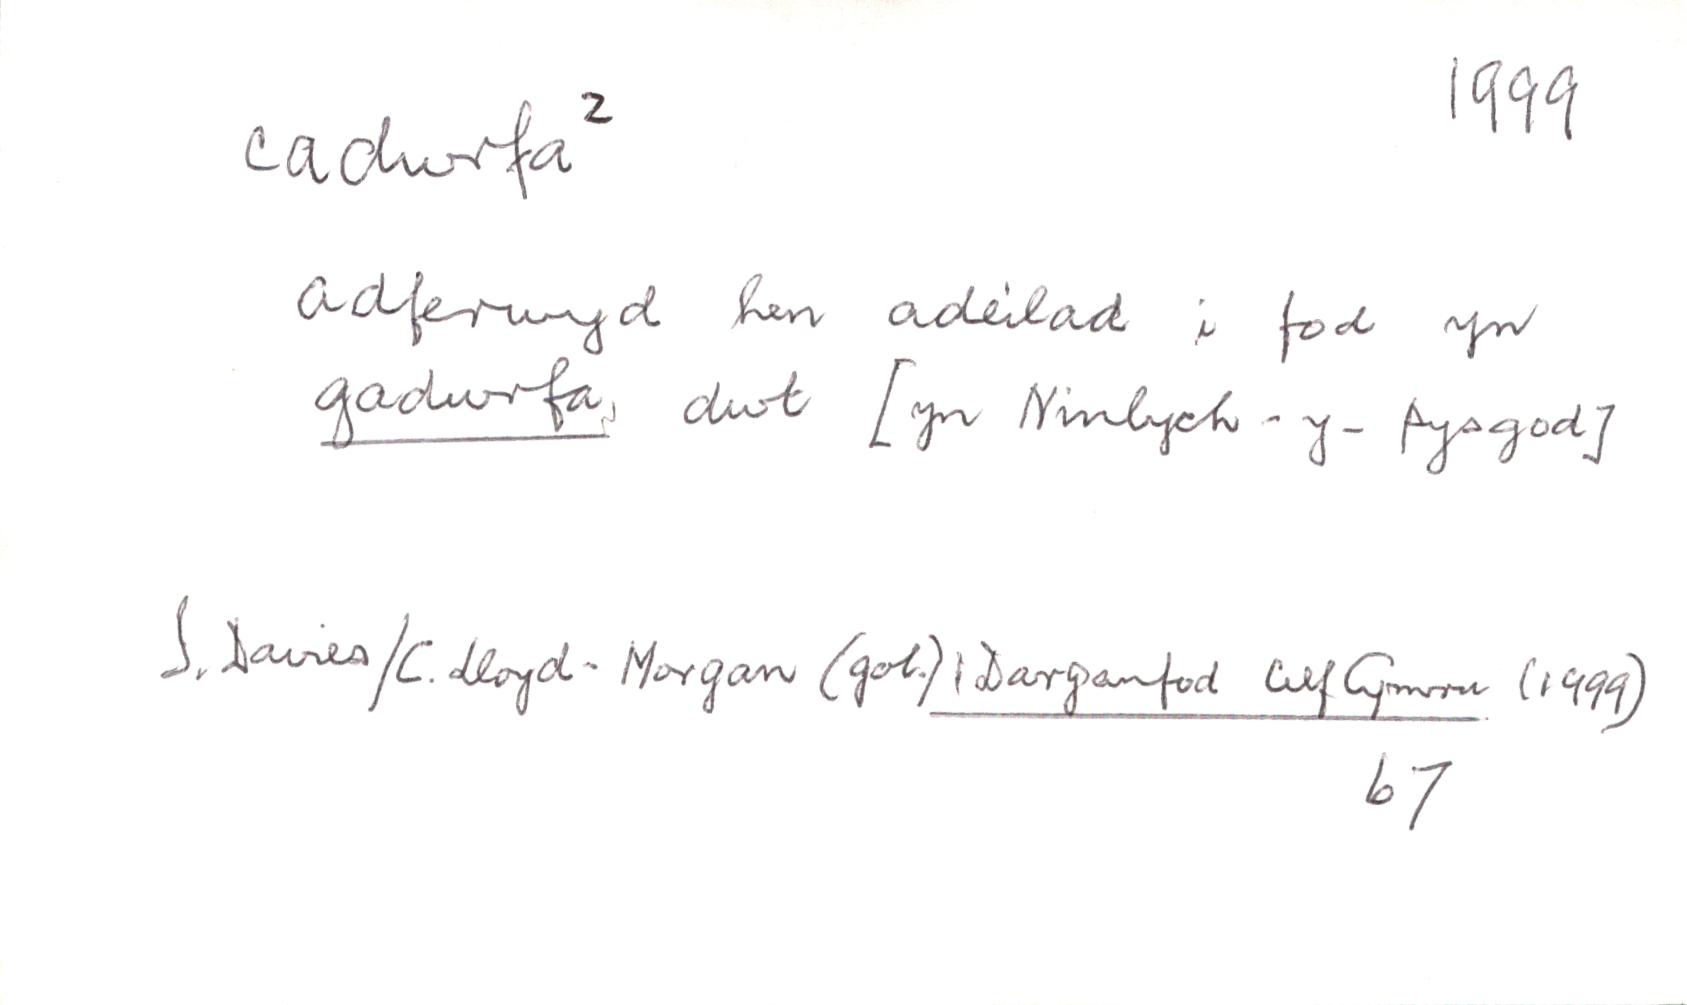 1999
cadwrfa²
adferwyd hen adeilad i fod yn
gadwrfa, dwt [yn Ninbych-y-Pysgod]
I. Davies/C. Lloyd-Morgan (gol.), Darganfod Celf Cymru (1999)
67